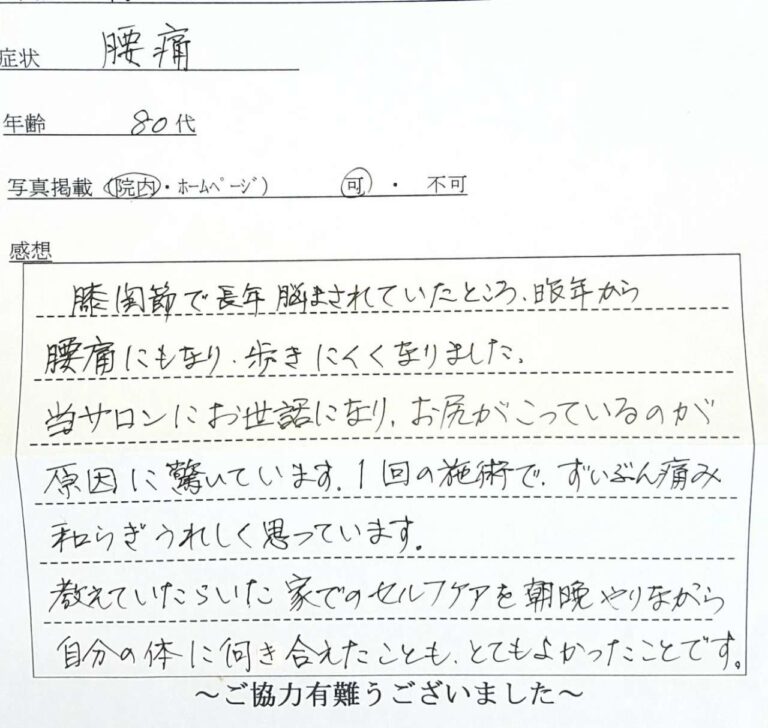 症状 腰痛
年齢 80代
写真掲載（院内・ホームページ） 可 ・ 不可
感想
膝関節で長年脳まされていたところ、昨年から
腰痛にもなり、歩きにくくなりました。
当サロンにお世話になり、お尻がこっているのが
原因に驚いています。1回の施術で、ずいぶん痛み
和らぎうれしく思っています。
教えていたらいた家でのセルフケアを朝晩やりながら
自分の体に向き合えたことも、とてもよかったことです。
～ご協力有難うございました～